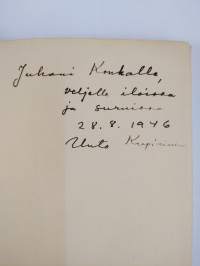 Juhani Konkalle,
veljelle iloissa
ja suruissa
28.8.1946
Unto Kupiainen